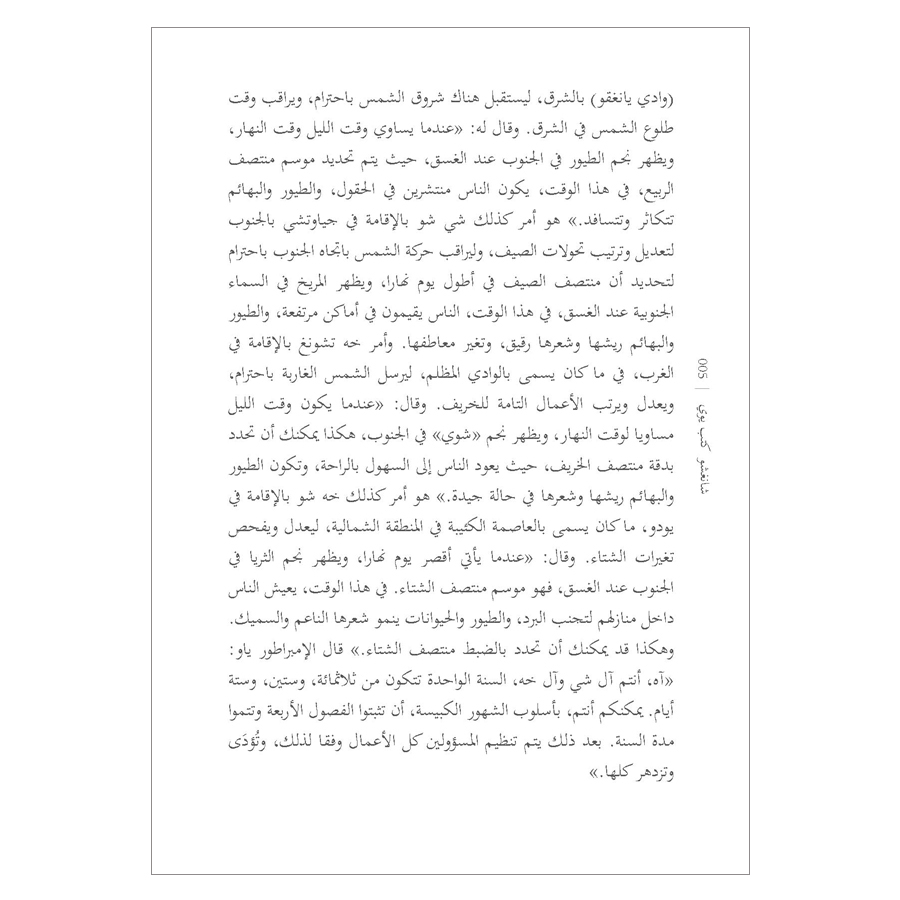 (وادي يانغقو) بالشرق، ليستقبل هناك شروق الشمس باحترام، ويراقب وقت
طلوع الشمس في الشرق. وقال له: «عندما يساوي وقت الليل وقت النهار،
ويظهر نجم الطيور في الجنوب عند الغسق، حيث يتم تحديد موسم منتصف
الربيع، في هذا الوقت، يكون الناس منتشرين في الحقول، والطيور والبهائم
تتكاثر وتتسافد.» هو أمر كذلك شي شو بالإقامة في جياوتشي بالجنوب
لتعديل وترتيب تحولات الصيف، وليراقب حركة الشمس باتجاه الجنوب باحترام
لتحديد أن منتصف الصيف في أطول يوم نهارا، ويظهر المريخ في السماء
الجنوبية عند الغسق، في هذا الوقت، الناس يقيمون في أماكن مرتفعة، والطيور
والبهائم ريشها وشعرها رقيق، وتغير معاطفها. وأمر خه تشونغ بالإقامة في
الغرب، في ما كان يسمى بالوادي المظلم، ليرسل الشمس الغاربة باحترام،
ويعدل ويرتب الأعمال التامة للخريف. وقال: «عندما يكون وقت الليل
مساويا لوقت النهار، ويظهر نجم «شوي» في الجنوب، هكذا يمكنك أن تحدد
بدقة منتصف الخريف، حيث يعود الناس إلى السهول بالراحة، وتكون الطيور
والبهائم ريشها وشعرها في حالة جيدة.» هو أمر كذلك خه شو بالإقامة في
يودو، ما كان يسمى بالعاصمة الكئيبة في المنطقة الشمالية، ليعدل ويفحص
تغيرات الشتاء. وقال: «عندما يأتي أقصر يوم نهارا، ويظهر نجم الثريا في
الجنوب عند الغسق، فهو موسم منتصف الشتاء. في هذا الوقت، يعيش الناس
داخل منازلهم لتجنب البرد، والطيور والحيوانات ينمو شعرها الناعم والسميك.
وهكذا قد يمكنك أن تحدد بالضبط منتصف الشتاء.» قال الإمبراطور ياو:
«آه، أنتم آل شي وآل خه، السنة الواحدة تتكون من ثلاثمائة، وستين، وستة
أيام. يمكنكم أنتم، بأسلوب الشهور الكبيسة، أن تثبتوا الفصول الأربعة وتتموا
مدة السنة. بعد ذلك يتم تنظيم المسؤولين كل الأعمال وفقا لذلك، وتُؤدَى
وتزدهر كلها.»
شانغشو كتب يوي | 005